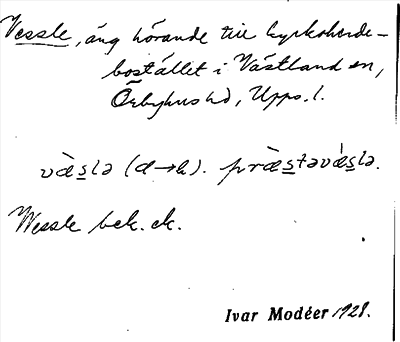 Vessle, äng hörande till kyrkoherde-
bostället i Västland sn,
Örbyhus hd, Upps. l.
væ̀slə (d→k). præ̀stəvæ̀slə.
Wessle bek. ek.
Ivar Modéer 1928.